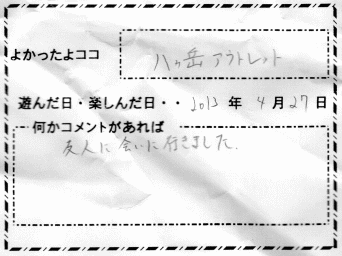 よかったよココ 八ヶ岳アウトレット
遊んだ日・楽しんだ日・・2013年4月27日
何かコメントがあれば
友人に会いに行きました.